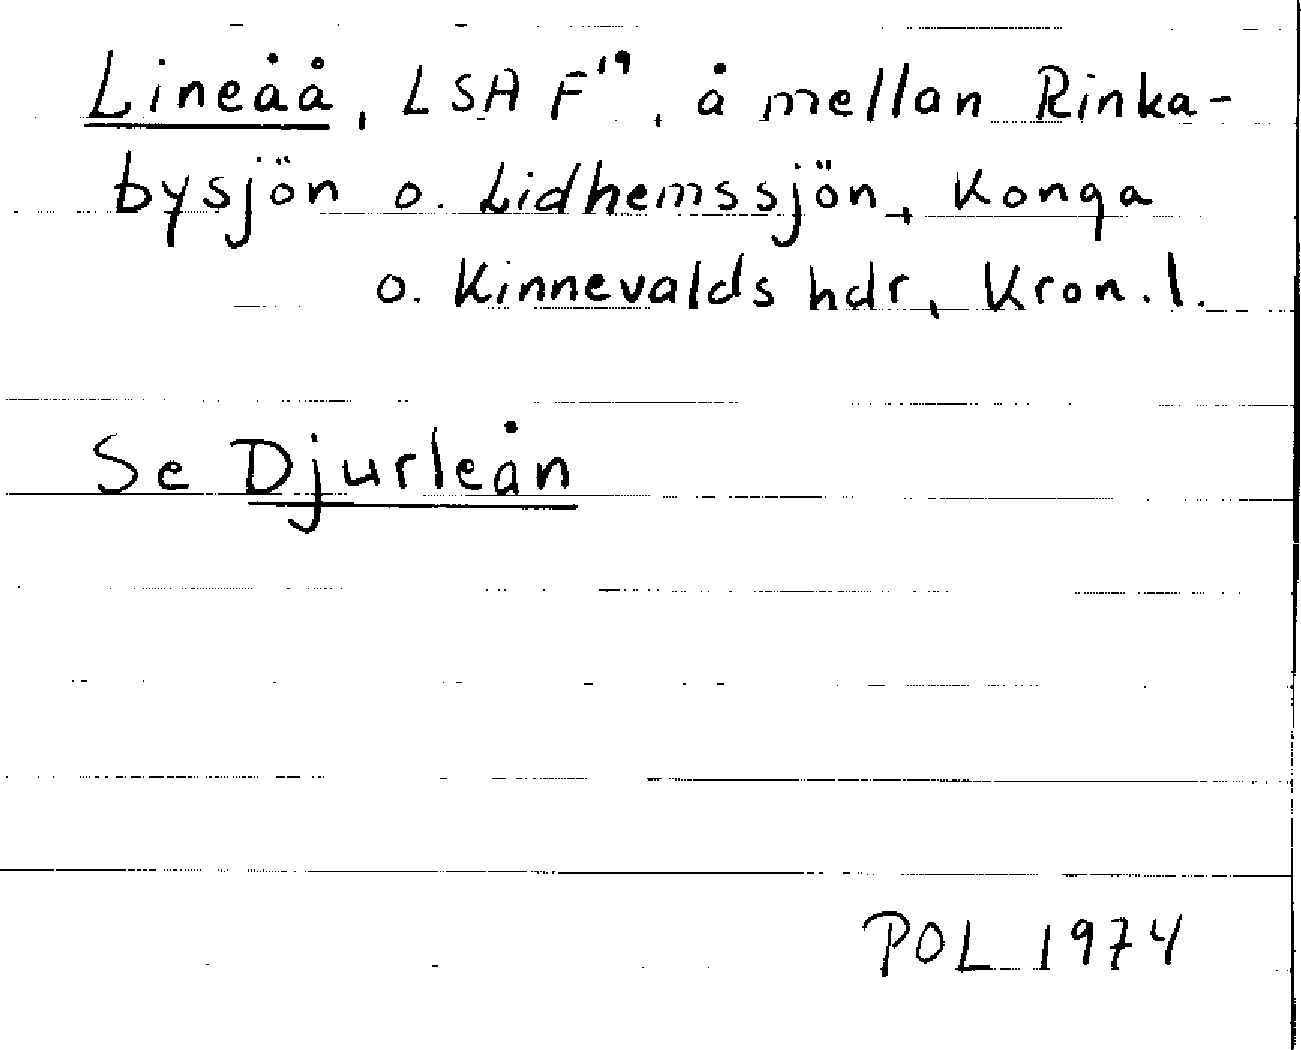 Lineåå, LSA F¹⁹, å mellan Rinka-
bysjön o. Lidhemssjön, Konga
o. Kinnevalds hdr, Kron. l.
Se Djurleån
POL 1974